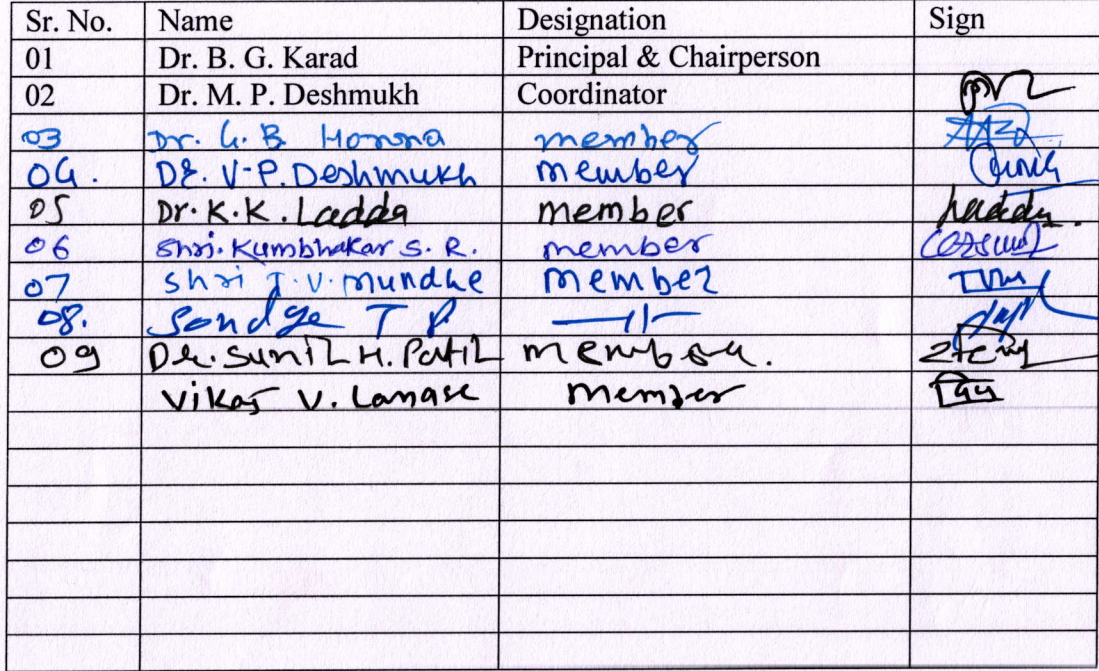 Sr. No. Name Designation Sign
01 Dr. B. G. Karad Principal & Chairperson
02 Dr. M. P. Deshmukh Coordinator
03 Dr. G. B. Honna member
04. Dr. V.P. Deshmukh member
05 Dr. K.K. Ladda member
06 Shri. Kumbhakar S. R. member
07 Shri T.V. Mundhe member
08. Sondge T P —11—
09 Dr. Sunil H. Patil member.
Vikas V. Lanase member